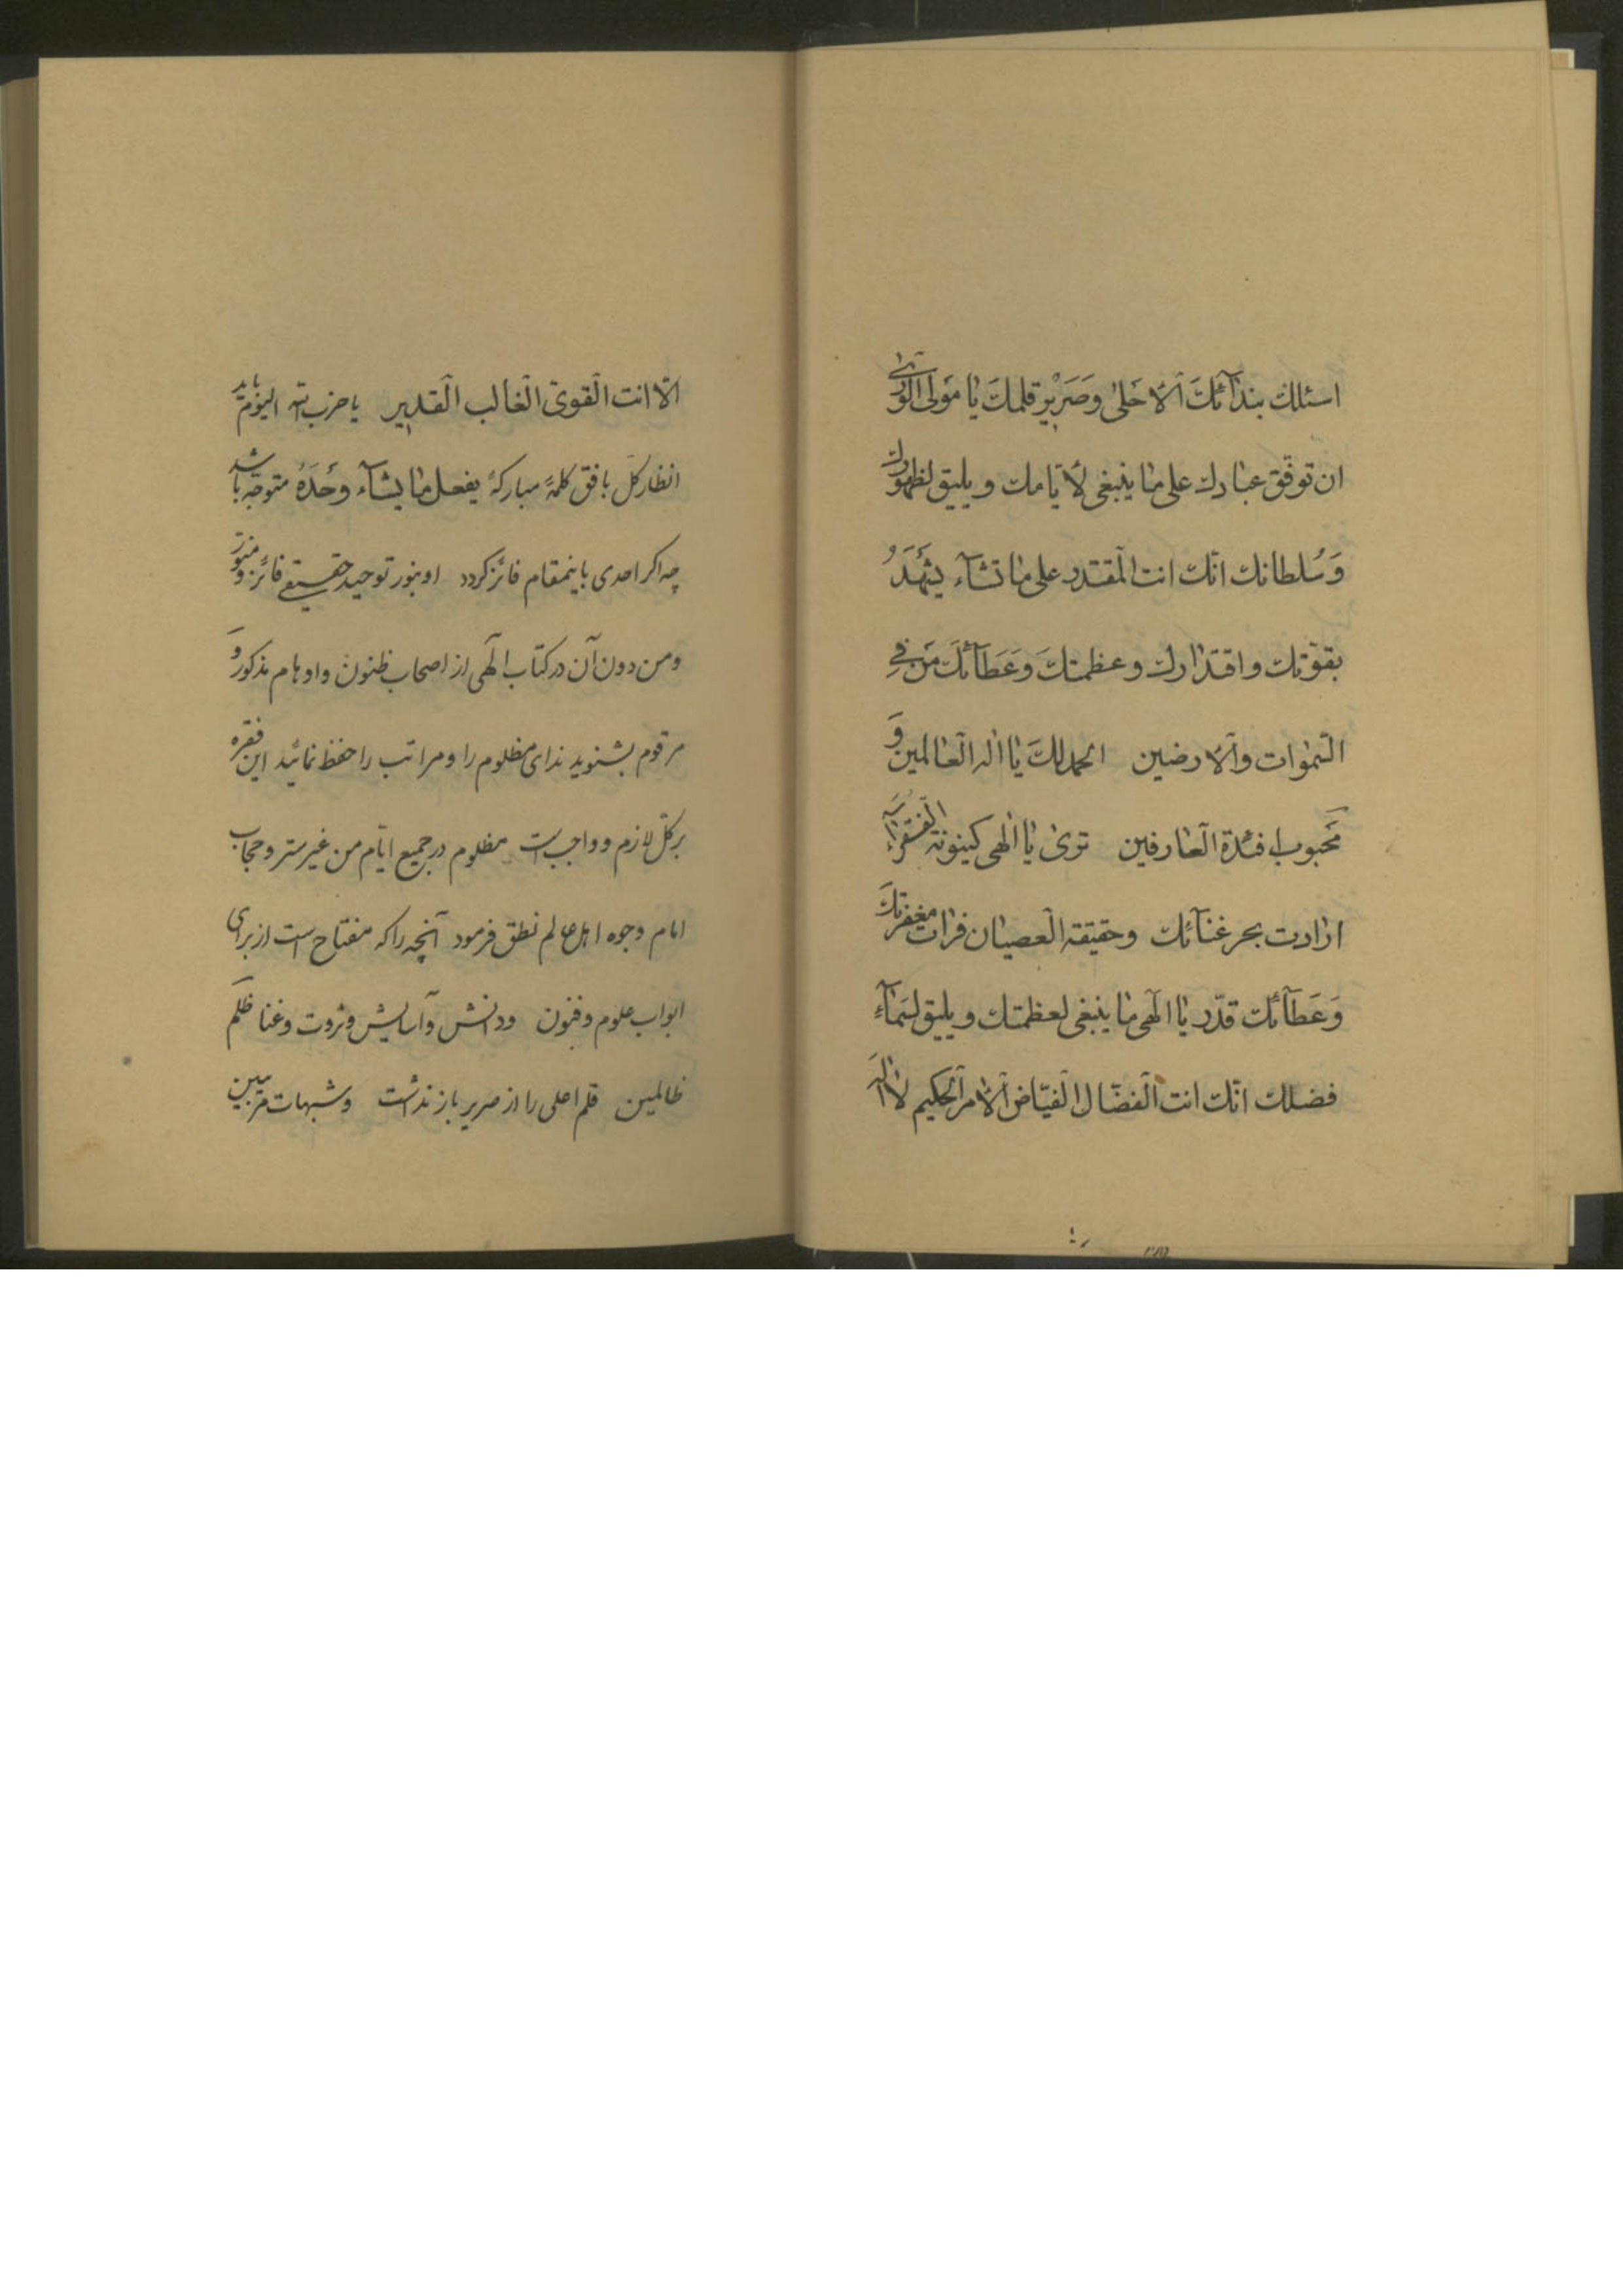 اسئلك بندآئك الأحلىٰ وَصَرِيْرِ قلمكَ يا مَولَى الورىٰ
ان توفّق عبادك على ما ينبغى لأيّامك و يليق لظهورك
وَسُلطانك انّك انت المقتدر على ما تشآء يشهَدُ
بقوّتك و اقتدارك و عظمتكَ وَعَطآئكَ مَن فِي
السّموات و الأرضين الحمد لكَ يا اله العالمين وَ
مَحبوب افئدة العارفين ترى يا الهى كينونة الفقر
ارادت بحر غنآئك و حقيقة العصيان فرات مغفرتك
وَعَطآئك قدّر يا الهى ما ينبغى لعظمتك و يليق لسَمآءِ
فضلك انّك انت الفضّال الفيّاض الآمر الحكيم لا اله
الّا انت القوىّ الغالب القدير يا حزب اللّه اليوم بايد
انظار كل بافق كلمهٔ مباركهٔ يفعل ما يشآء وحدَهُ متوجّه باشد
چه اكر احدى باينمقام فائز كردد او بنور توحيد حقيقى فائز و منوّر
و من دون آن در كتاب الهى از اصحاب ظنون و اوهام مذكور وَ
مرقوم بشنويد نداى مظلوم را و مراتب را حفظ نمائيد اين فقره
بر كلّ لازم و واجب است مظلوم در جميع ايّام من غير ستر و حجاب
امام وجوه اهل عالم نطق فرمود آنچه را كه مفتاح است از براى
ابواب علوم و فنون و دانش و آسايش و ثروت و غنا ظلم
ظالمين قلم اعلى را از صرير باز نداشت و شبهات مريبين